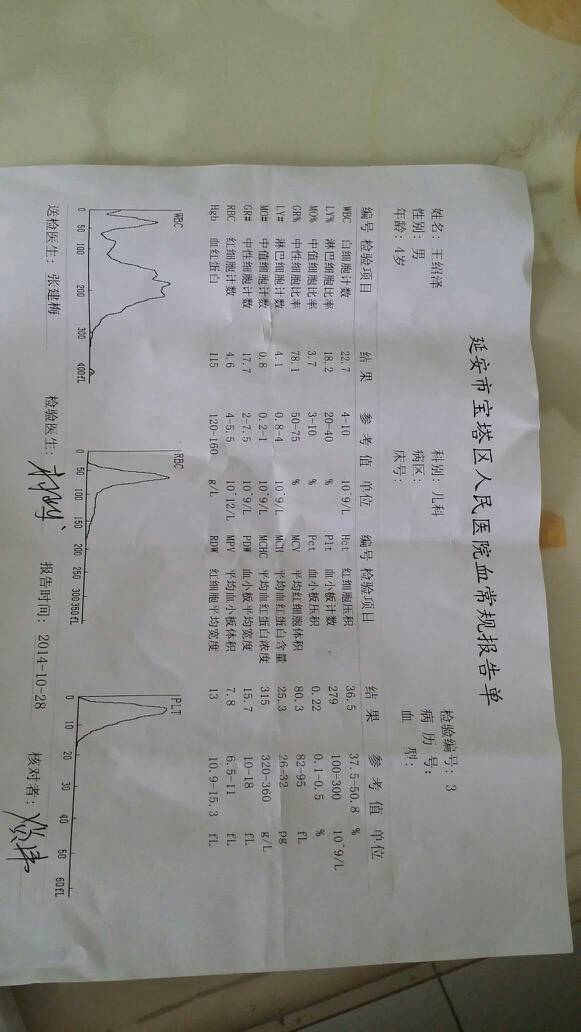 延安市宝塔区人民医院血常规报告单
检验编号: 3
姓名: 王绍泽 科别: 儿科 病历号:
性别: 男 病区: 血 型:
年龄: 4岁 床号:
编号 检验项目 结 果 参 考 值 单位 编号 检验项目 结 果 参 考 值 单位
WBC 白细胞计数 22.7 4-10 10^9/L Hct 红细胞压积 36.5 37.5-50.8 %
LY% 淋巴细胞比率 18.2 20-40 % Plt 血小板计数 279 100-300 10^9/L
MO% 中值细胞比率 3.7 3-10 % Pct 血小板压积 0.22 0.1-0.5 %
GR% 中性细胞比率 78.1 50-75 % MCV 平均红细胞体积 80.3 82-95 fL
LY# 淋巴细胞计数 4.1 0.8-4 10^9/L MCH 平均血红蛋白含量 25.3 26-32 pg
MO# 中值细胞计数 0.8 0.2-1 10^9/L MCHC 平均血红蛋白浓度 315 320-360 g/L
GR# 中性细胞计数 17.7 2-7.5 10^9/L PDW 血小板平均宽度 15.7 10-18 fL
RBC 红细胞计数 4.6 4-5.5 10^12/L MPV 平均血小板体积 7.8 6.5-11 fL
Hgb 血红蛋白 115 120-160 g/L RDW 红细胞平均宽度 13 10.9-15.3 fL
WBC RBC PLT
0 50 100 200 300 400fL 0 50 100 150 250 300 350fL 0 10 20 30 40 50 60fL
送检医生: 张建梅 检验医生: 报告时间: 2014-10-28 核对者: